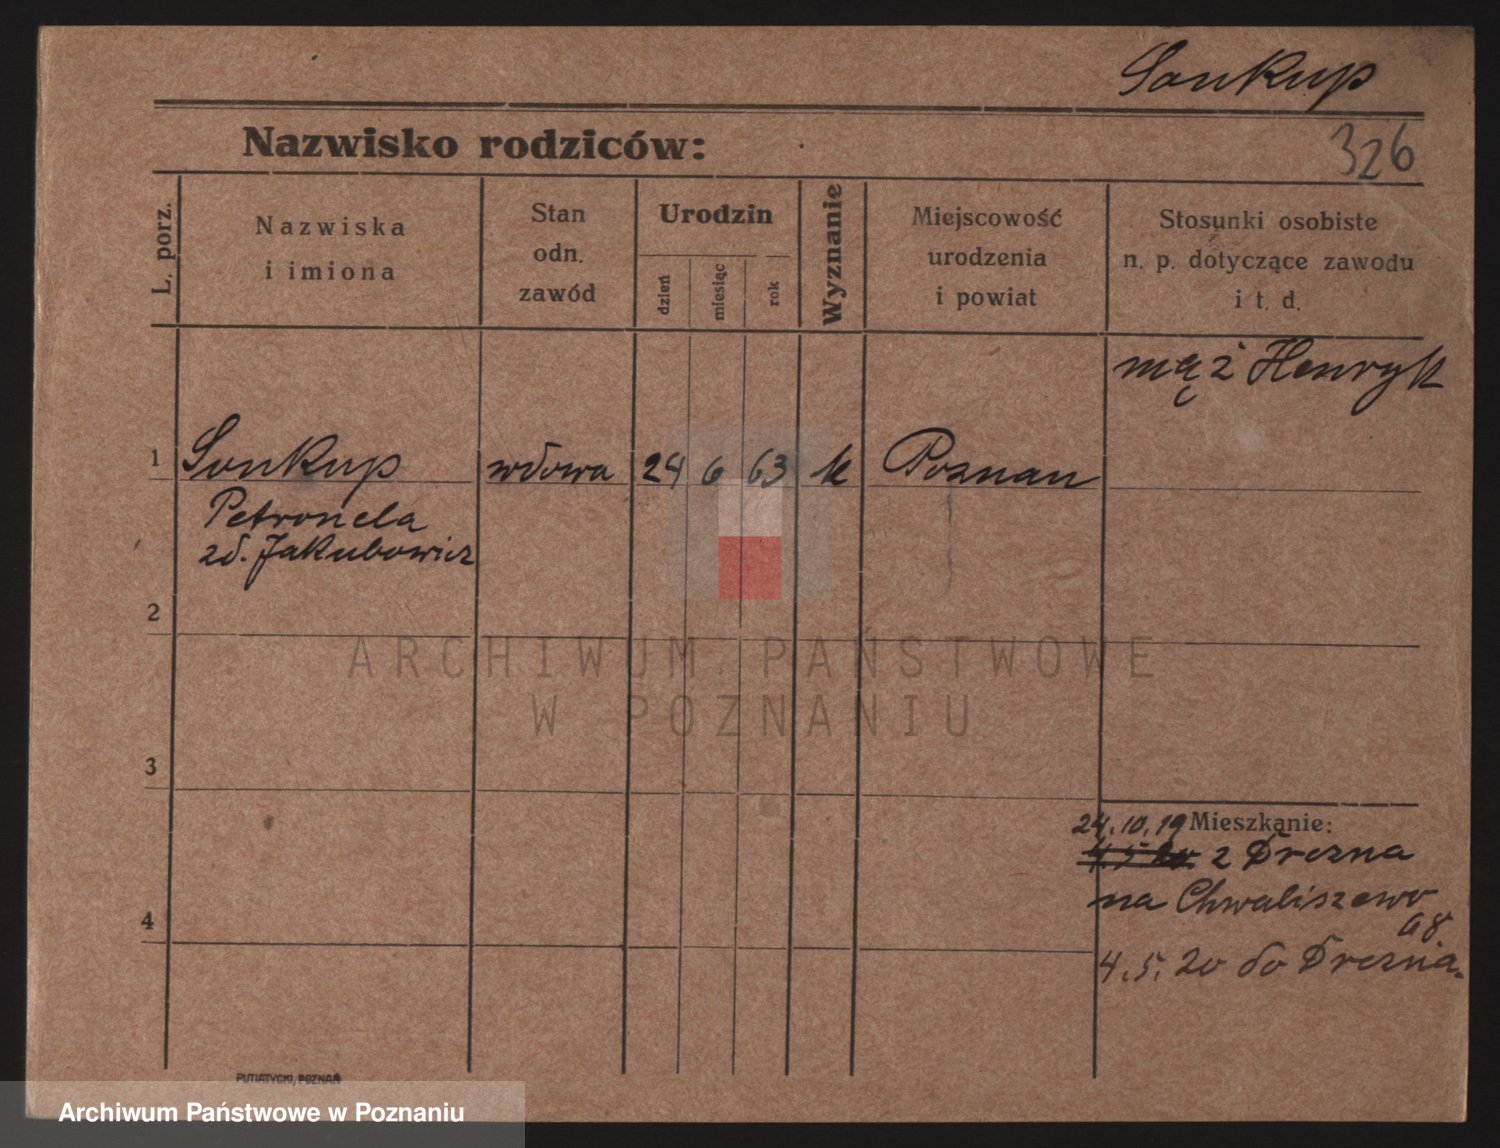 Soukup
Nazwisko rodziców:
326
L. porz.
Nazwiska
i imiona
Stan
odn.
zawód
Urodzin
dzień
miesiąc
rok
Wyznanie
Miejscowość
urodzenia
i powiat
Stosunki osobiste
n. p. dotyczące zawodu
i t. d.
mąż Henryk
1 Soukup wdowa 24 6 63 k Poznan
Petronela
zd. Jakubowicz
2
ARCHIWUM PAŃSTWOWE
W POZNANIU
3
24.10.19 Mieszkanie:
4.5.20. z Drezna
na Chwaliszewo
68.
4
4.5.20 do Drezna.
PUTIATYCKI, POZNAŃ
Archiwum Państwowe w Poznaniu